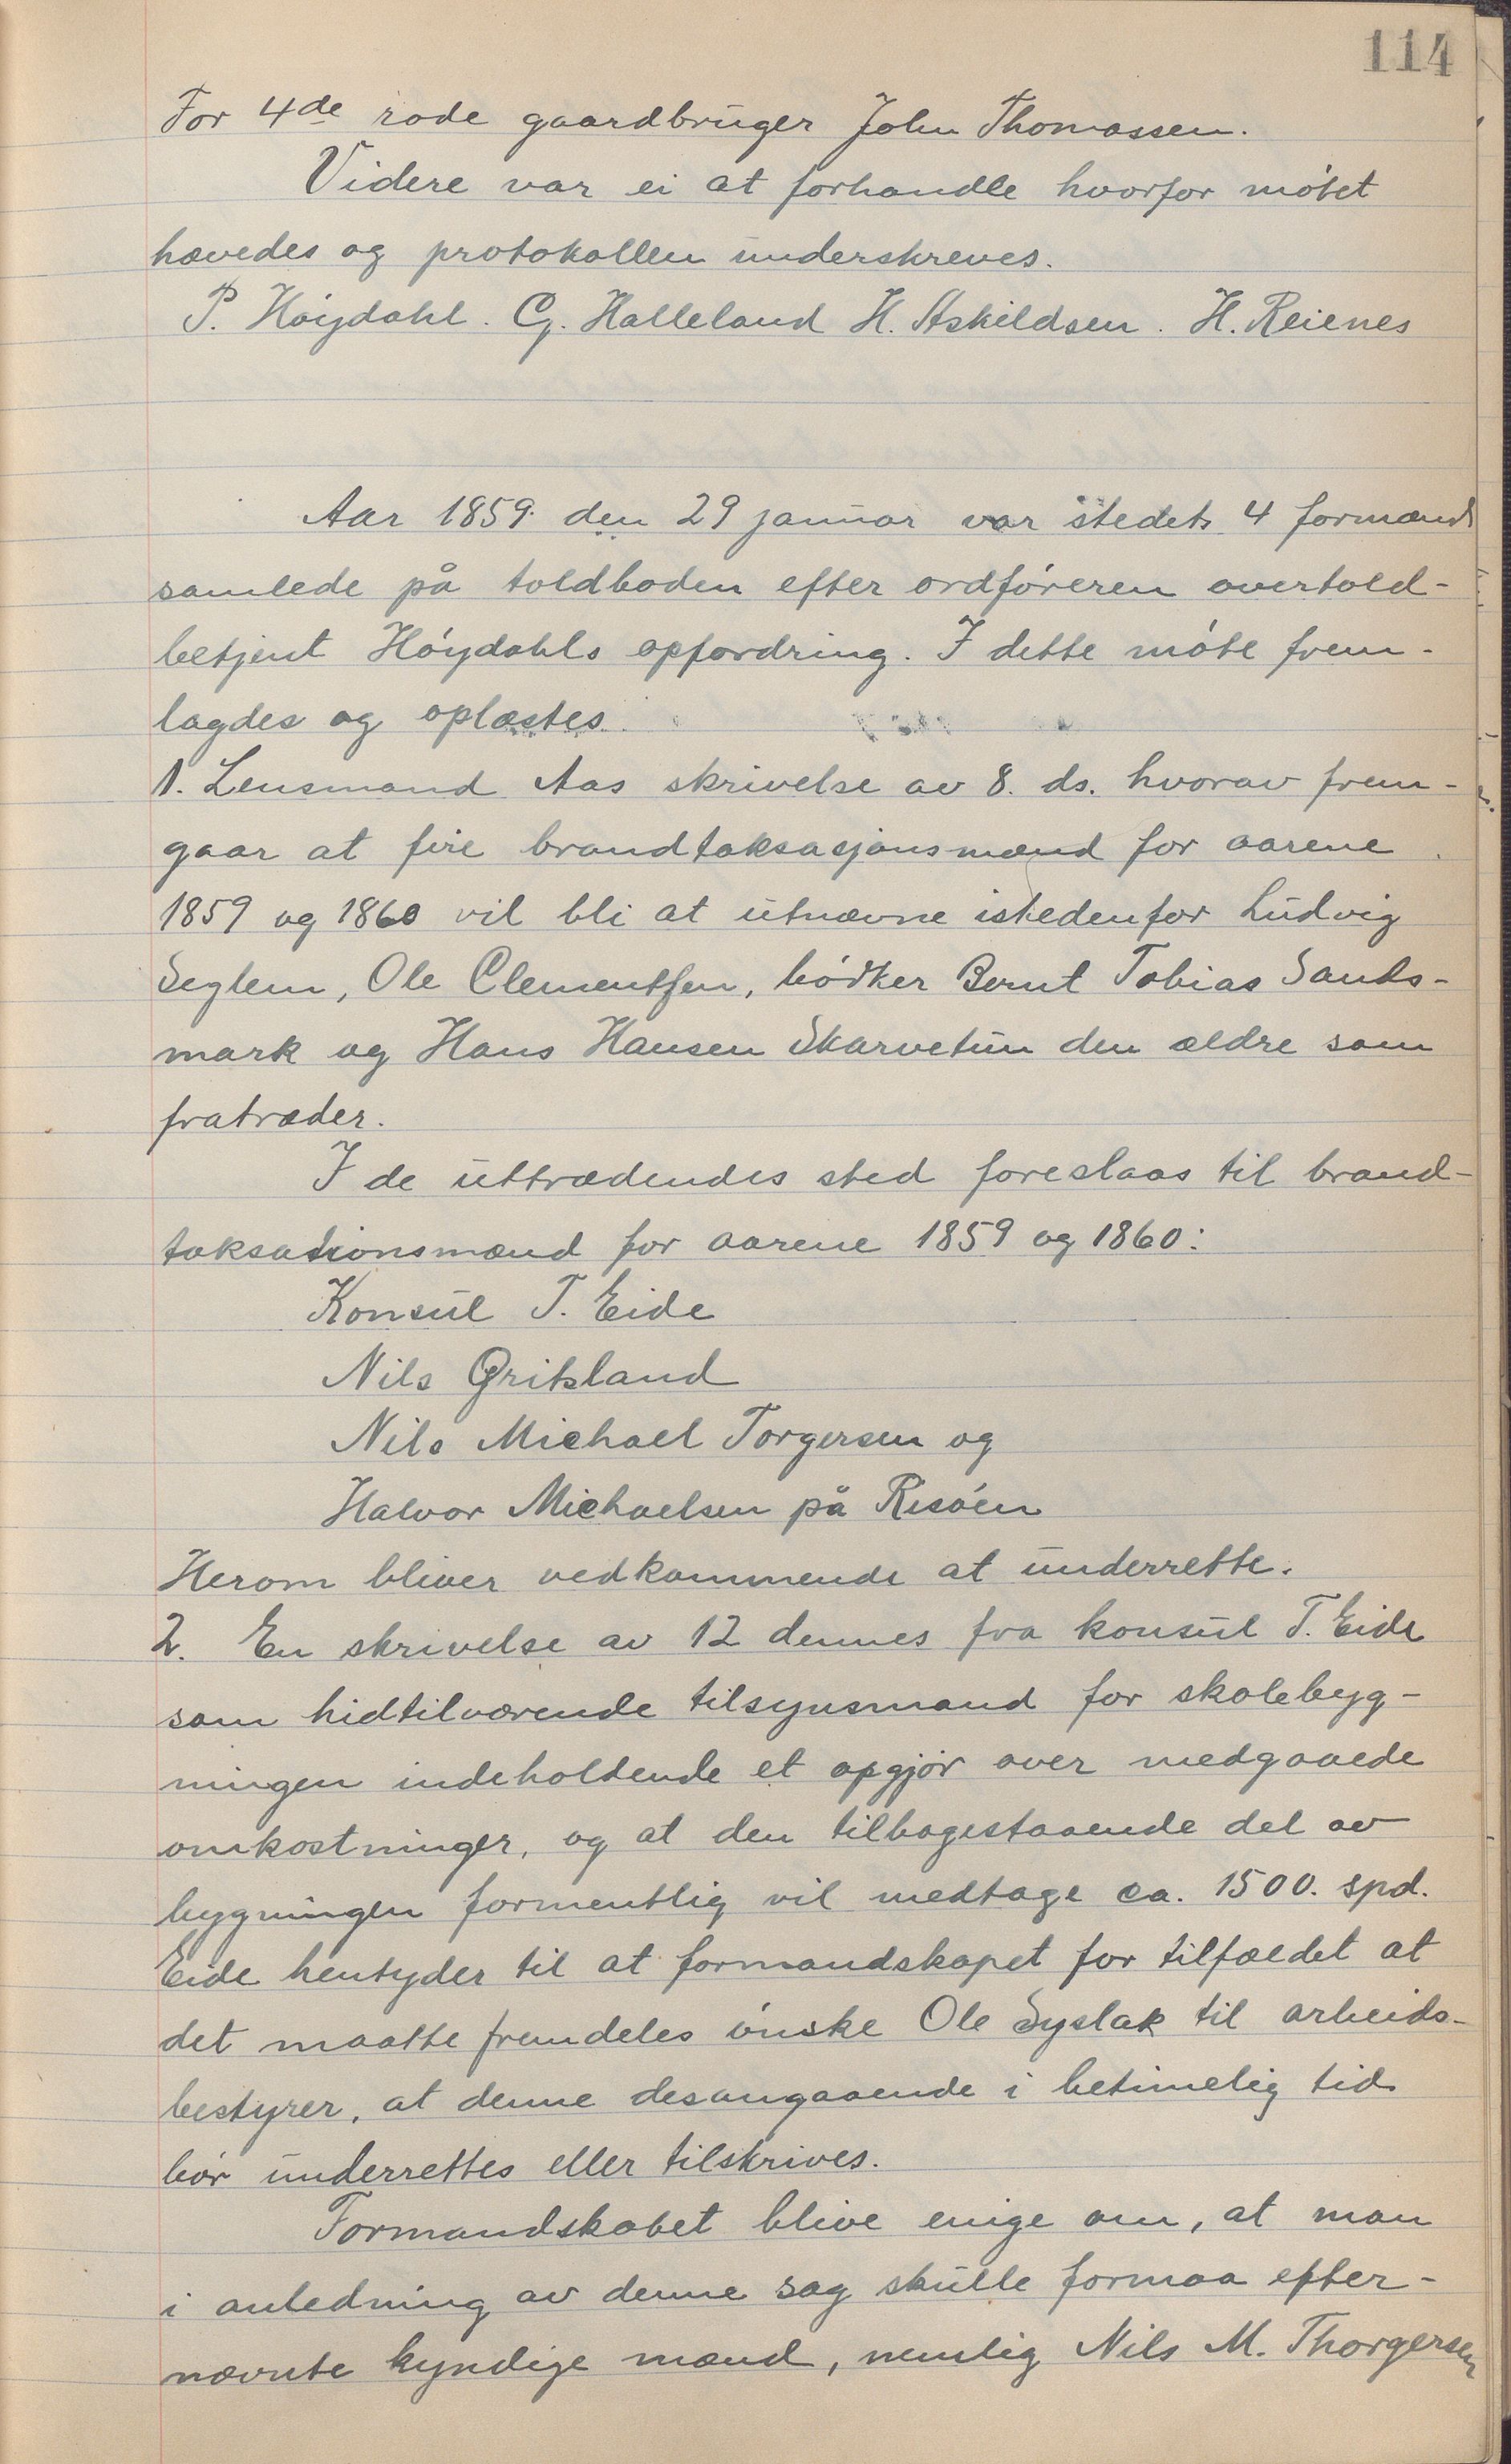 114
For 4de rode gaardbruger John Thomassen.
Videre var ei at forhandle hvorfor møtet
hævedes og protokollen underskreves.
P. Høydahl. G. Halleland H. Askildsen. H. Reienes
Aar 1859. den 29 januar var stedets 4 formænd
samlede på toldboden efter ordføreren overtold-
betjent Høydahls opfordring. I dette møte frem-
lagdes og oplæstes.
1. Lensmand Aas skrivelse av 8. ds. hvorav frem-
gaar at fire brandtaksasjonsmænd for aarene
1859 og 1860 vil bli at utnævne istedenfor Ludvig
Seglem, Ole Clementsen, bødker Bernt Tobias Sands-
mark og Hans Hansen Skarvetun den ældre som
fratræder.
I de uttrædendes sted foreslaas til brand-
taksationsmænd for aarene 1859 og 1860:
Konsul T. Eide
Nils Gritsland
Nils Michael Torgersen og
Halvor Michaelsen på Risøen
Herom bliver vedkommende at underrette.
2. En skrivelse av 12 dennes fra konsul T. Eide
som hidtilværende tilsynsmand for skolebyg-
ningen indeholdende et opgjør over medgaaede
omkostninger, og at den tilbagestaaende del av
bygningen formentlig vil medtage ca. 1500. spd.
Eide hentyder til at formandskapet for tilfældet at
det maatte fremdeles ønske Ole Syslak til arbeids-
bestyrer, at denne desangaaende i betimelig tid
bør underrettes eller tilskrives.
Formandskabet blive enige om, at man
i anledning av denne sag skulle formaa efter-
nævnte kyndige mænd, nemlig Nils M. Thorgersen